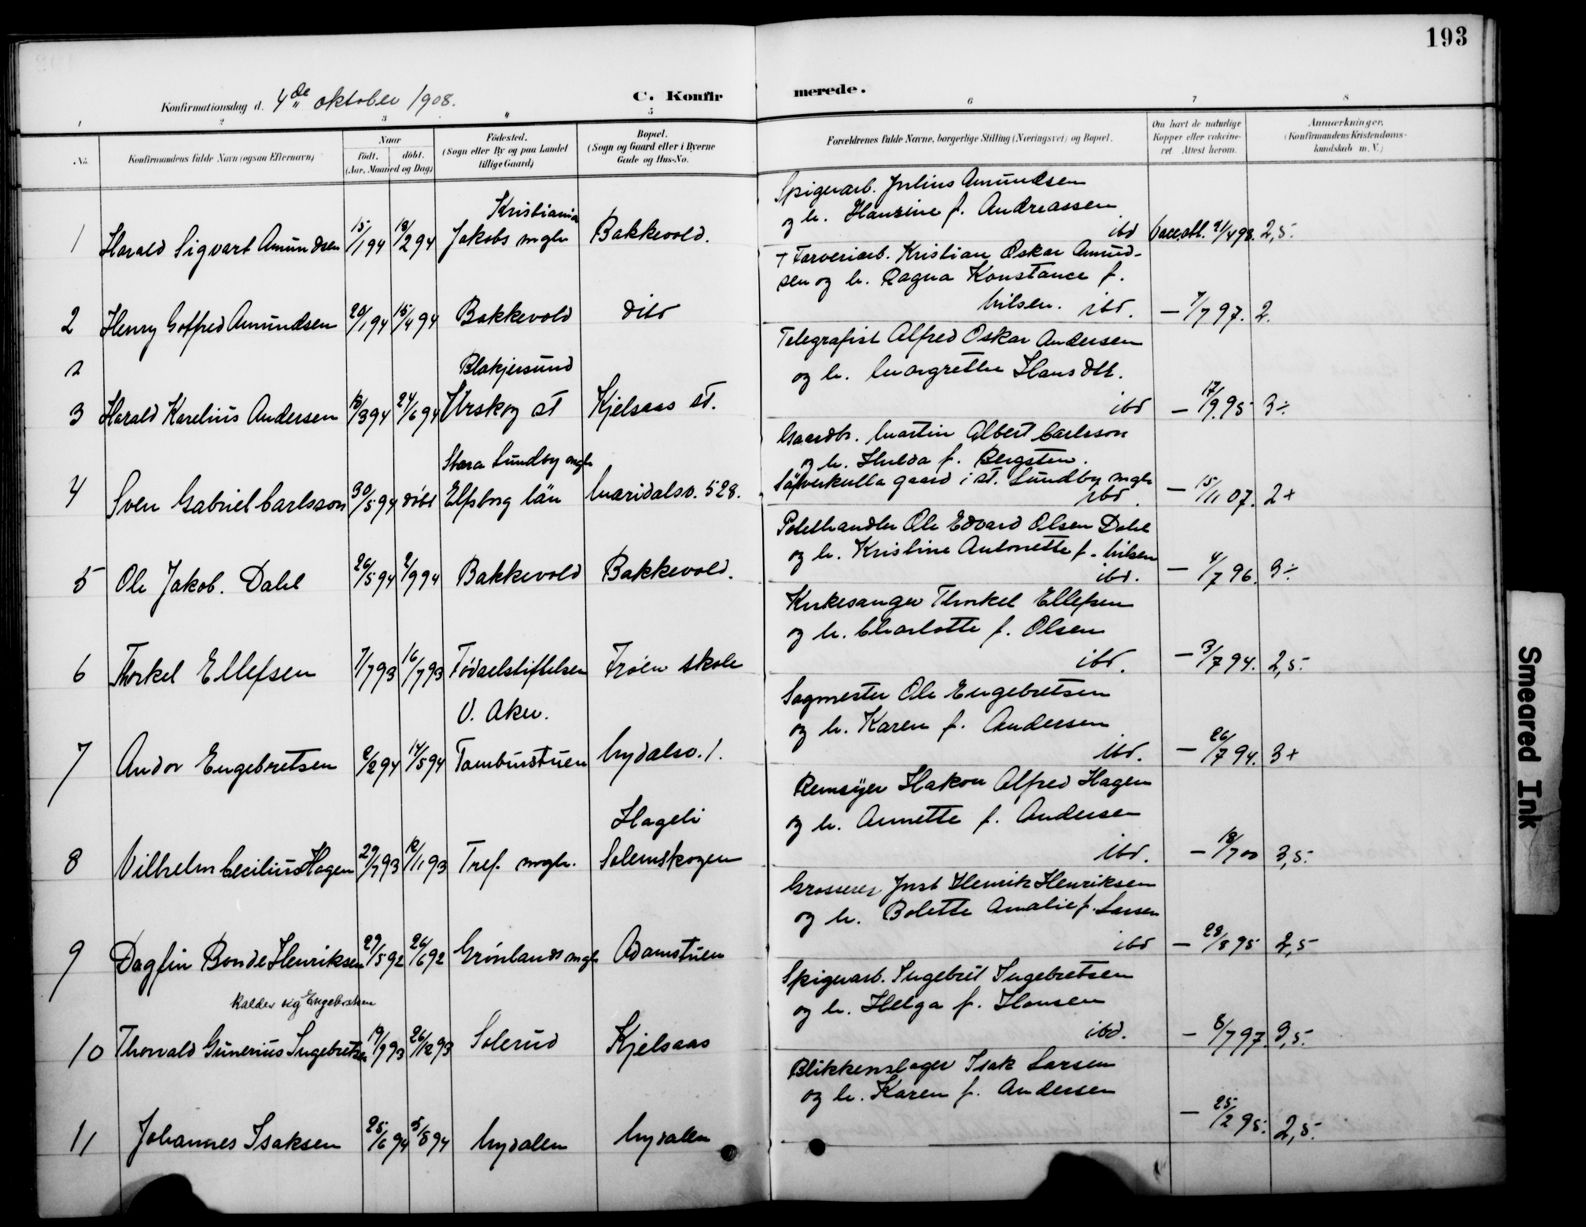 193
Konfirmationsdag d. 4de oktober 1908.
C. Konfirmerede.
1 2 3 4 5 6 7 8
No.
Konfirmandens fulde Navn (ogsaa Efternavn)
Naar
født. døbt.
(Aar, Maaned og Dag)
Fødested.
(Sogn eller By og paa Landet
tillige Gaard)
Bopæl.
(Sogn og Gaard eller i Byerne
Gade og Hus-No.
Forældrenes fulde Navne, borgerlige Stilling (Næringsvei) og Bopæl.
Om havt de naturlige
Kopper eller vakcine-
ret. Attest herom.
Anmærkninger.
(Konfirmandens Kristendoms-
kundskab m. V.)
1 Harald Sigvart Amundsen 15/1 94 18/2 94 Kristiania
Jakobs mgh Bakkevold.
Spigerarb. Julius Amundsen
og h. Hansine f. Andreassen
ibd 21/4 98. 2,5.
2 Henry Goffred Amundsen 20/1 94 15/4 94 Bakkevold dito
+ Farveriarb. Kristian Oskar Amund-
sen og h. Ragna Konstance f.
Nilsen. ibd. — 7/7 97. 2.
2
3 Harald Karelius Andersen 18/3 94 24/6 94 Blakjersund
Urskog st Kjelsaas st.
Telegrafist Alfred Oskar Andersen
og h. Margrethe Hansdtt.
ibd — 17/9 95 3÷
4 Sven Gabriel Carlsson 30/5 94 døbt Stora Lundby mgh
Elfsborg län Maridalsv. 528.
Gaardbr. Martin Albert Carlsson
og h. Hulda f. Bergsten.
gaard i St. Lundby mgh
ibd. — 15/11 07. 2+
5 Ole Jakob. Dahl 26/5 94 2/9 94 Bakkevold Bakkevold.
Ole Edvard Olsen Dahl
og h. Kristine Antonette f. Nilsen
ibd. — 4/7 96. 3÷
6 Thorkel Ellefsen 7/7 93 16/7 93 Fødselstiftelsen Frøen skole
Kirkesanger Thorkel Ellefsen
og h. Charlotte f. Olsen
ibd. — 3/7 94. 2,5.
7 Andor Engebretsen 2/2 94 14/5 94 V. Aker.
Tambustuen Nydalsv. 1.
Sagmester Ole Engebretsen
og h. Karen f. Andersen
ibd. — 26/7 94. 3+
8 Vilhelm Cecilius Hagen 29/7 93 12/11 93 Tref. mgh. Hageli
Solemskogen
Remsyer Hakon Alfred Hagen
og h. Annette f. Andersen
ibd. — 18/7 00 3,5.
9 Dagfin Bonde Henriksen 29/5 92 24/6 92 Grønlands mgh Adamstuen
Grosserer Just Henrik Henriksen
og h. Bolette Amalie f. Larsen
ibd — 23/8 95 2,5
Kalder sig Engebretsen
10 Thorvald Gunerius Ingebretsen 19/9 93 26/12 93 Solerud Kjelsaas
Spigerarb. Ingebret Ingebretsen
og h. Helga f. Hansen
ibd. — 6/7 97. 3,5.
11 Johannes Isaksen 25/6 94 5/8 94 Nydalen Nydalen
Blikkenslager Isak Larsen
og h. Karen f. Andersen
— 25/2 95. 2,5.
Smeared Ink